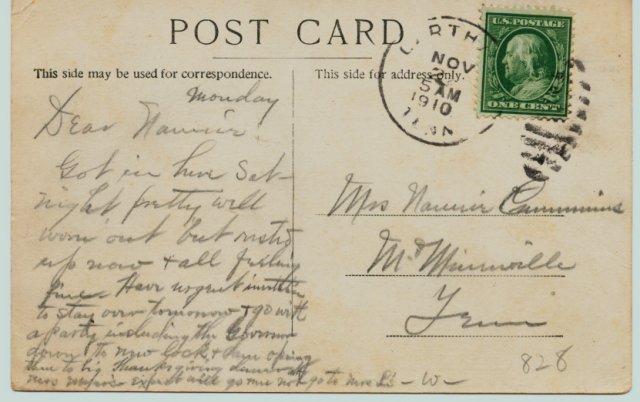 POST CARD
This side may be used for correspondence.
This side for address only.
U.S. POSTAGE
ONE CENT
NOV
5 AM
1910
TENN
Monday
Dear Nannie
Got in here Sat-
night pretty well
worn out but rest'd
up now & all feeling
fine. Have urgent
to stay over tomorrow & go with
a party including the Governor
down to new lock &
to big Thanksgiving
will go not go to Mrs L's - W -
Mrs Nannie Cummins
McMinnville
Tenn
828